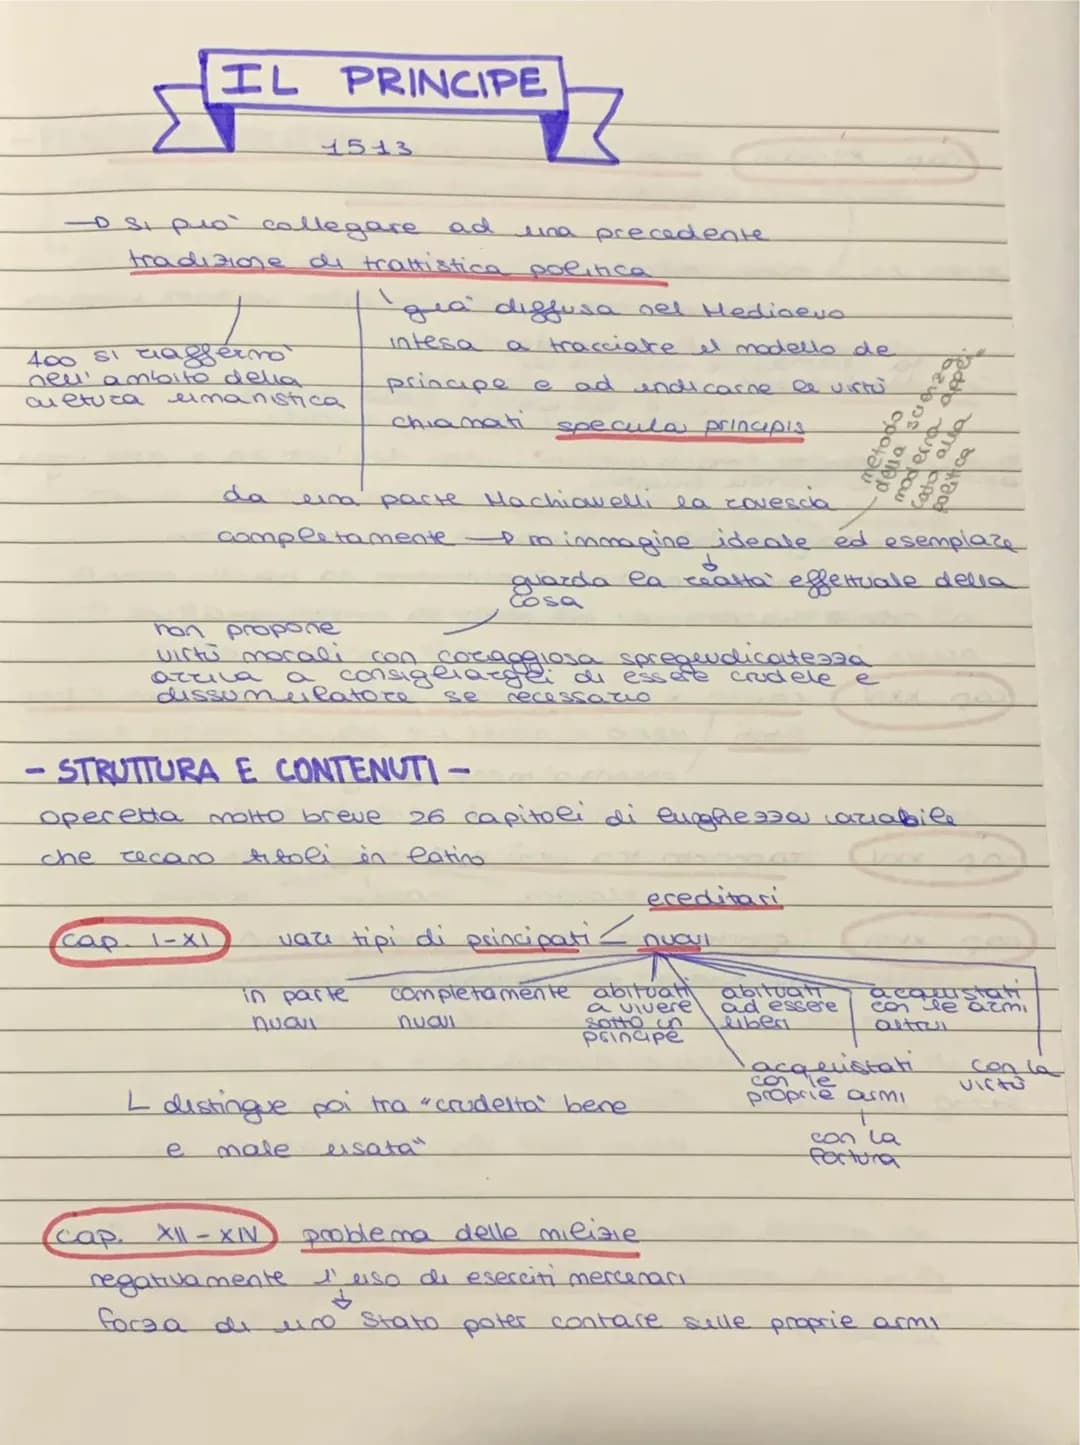 IL PRINCIPE
1513
→ si può collegare ad una precedente
tradizione di trattistica politica
già diffusa nel Medioevo
intesa a tracciare il modello de
principe e ad indicarne le virtù
chiamati specula principis
400 si riaffermò
nell'ambito della
cultura umanistica
metodo
della scienza
moderna appli-
cato alla
politica
da una parte Machiavelli la rovescia
completamente → no immagine ideale ed esemplare
guarda la realtà effettuale della
cosa
non propone
virtù morali con coraggiosa spregiudicatezza
arriva a consigliargli di essere crudele e
dissimulatore se necessario
- STRUTTURA E CONTENUTI -
operetta molto breve 26 capitoli di lunghezza variabile
che recano titoli in latino
ereditari
cap. I-XI vari tipi di principati nuovi
in parte
nuovi
completamente
nuovi
abituati
a vivere
sotto un
principe
abituati
ad essere
liberi
acquistati
con le armi
altrui
acquistati
con le
proprie armi
con la
virtù
con la
fortuna
L distingue poi tra "crudeltà bene
e male usata"
cap. XII - XIV problema delle milizie
negativamente l'uso di eserciti mercenari
forza di uno Stato poter contare sulle proprie armi